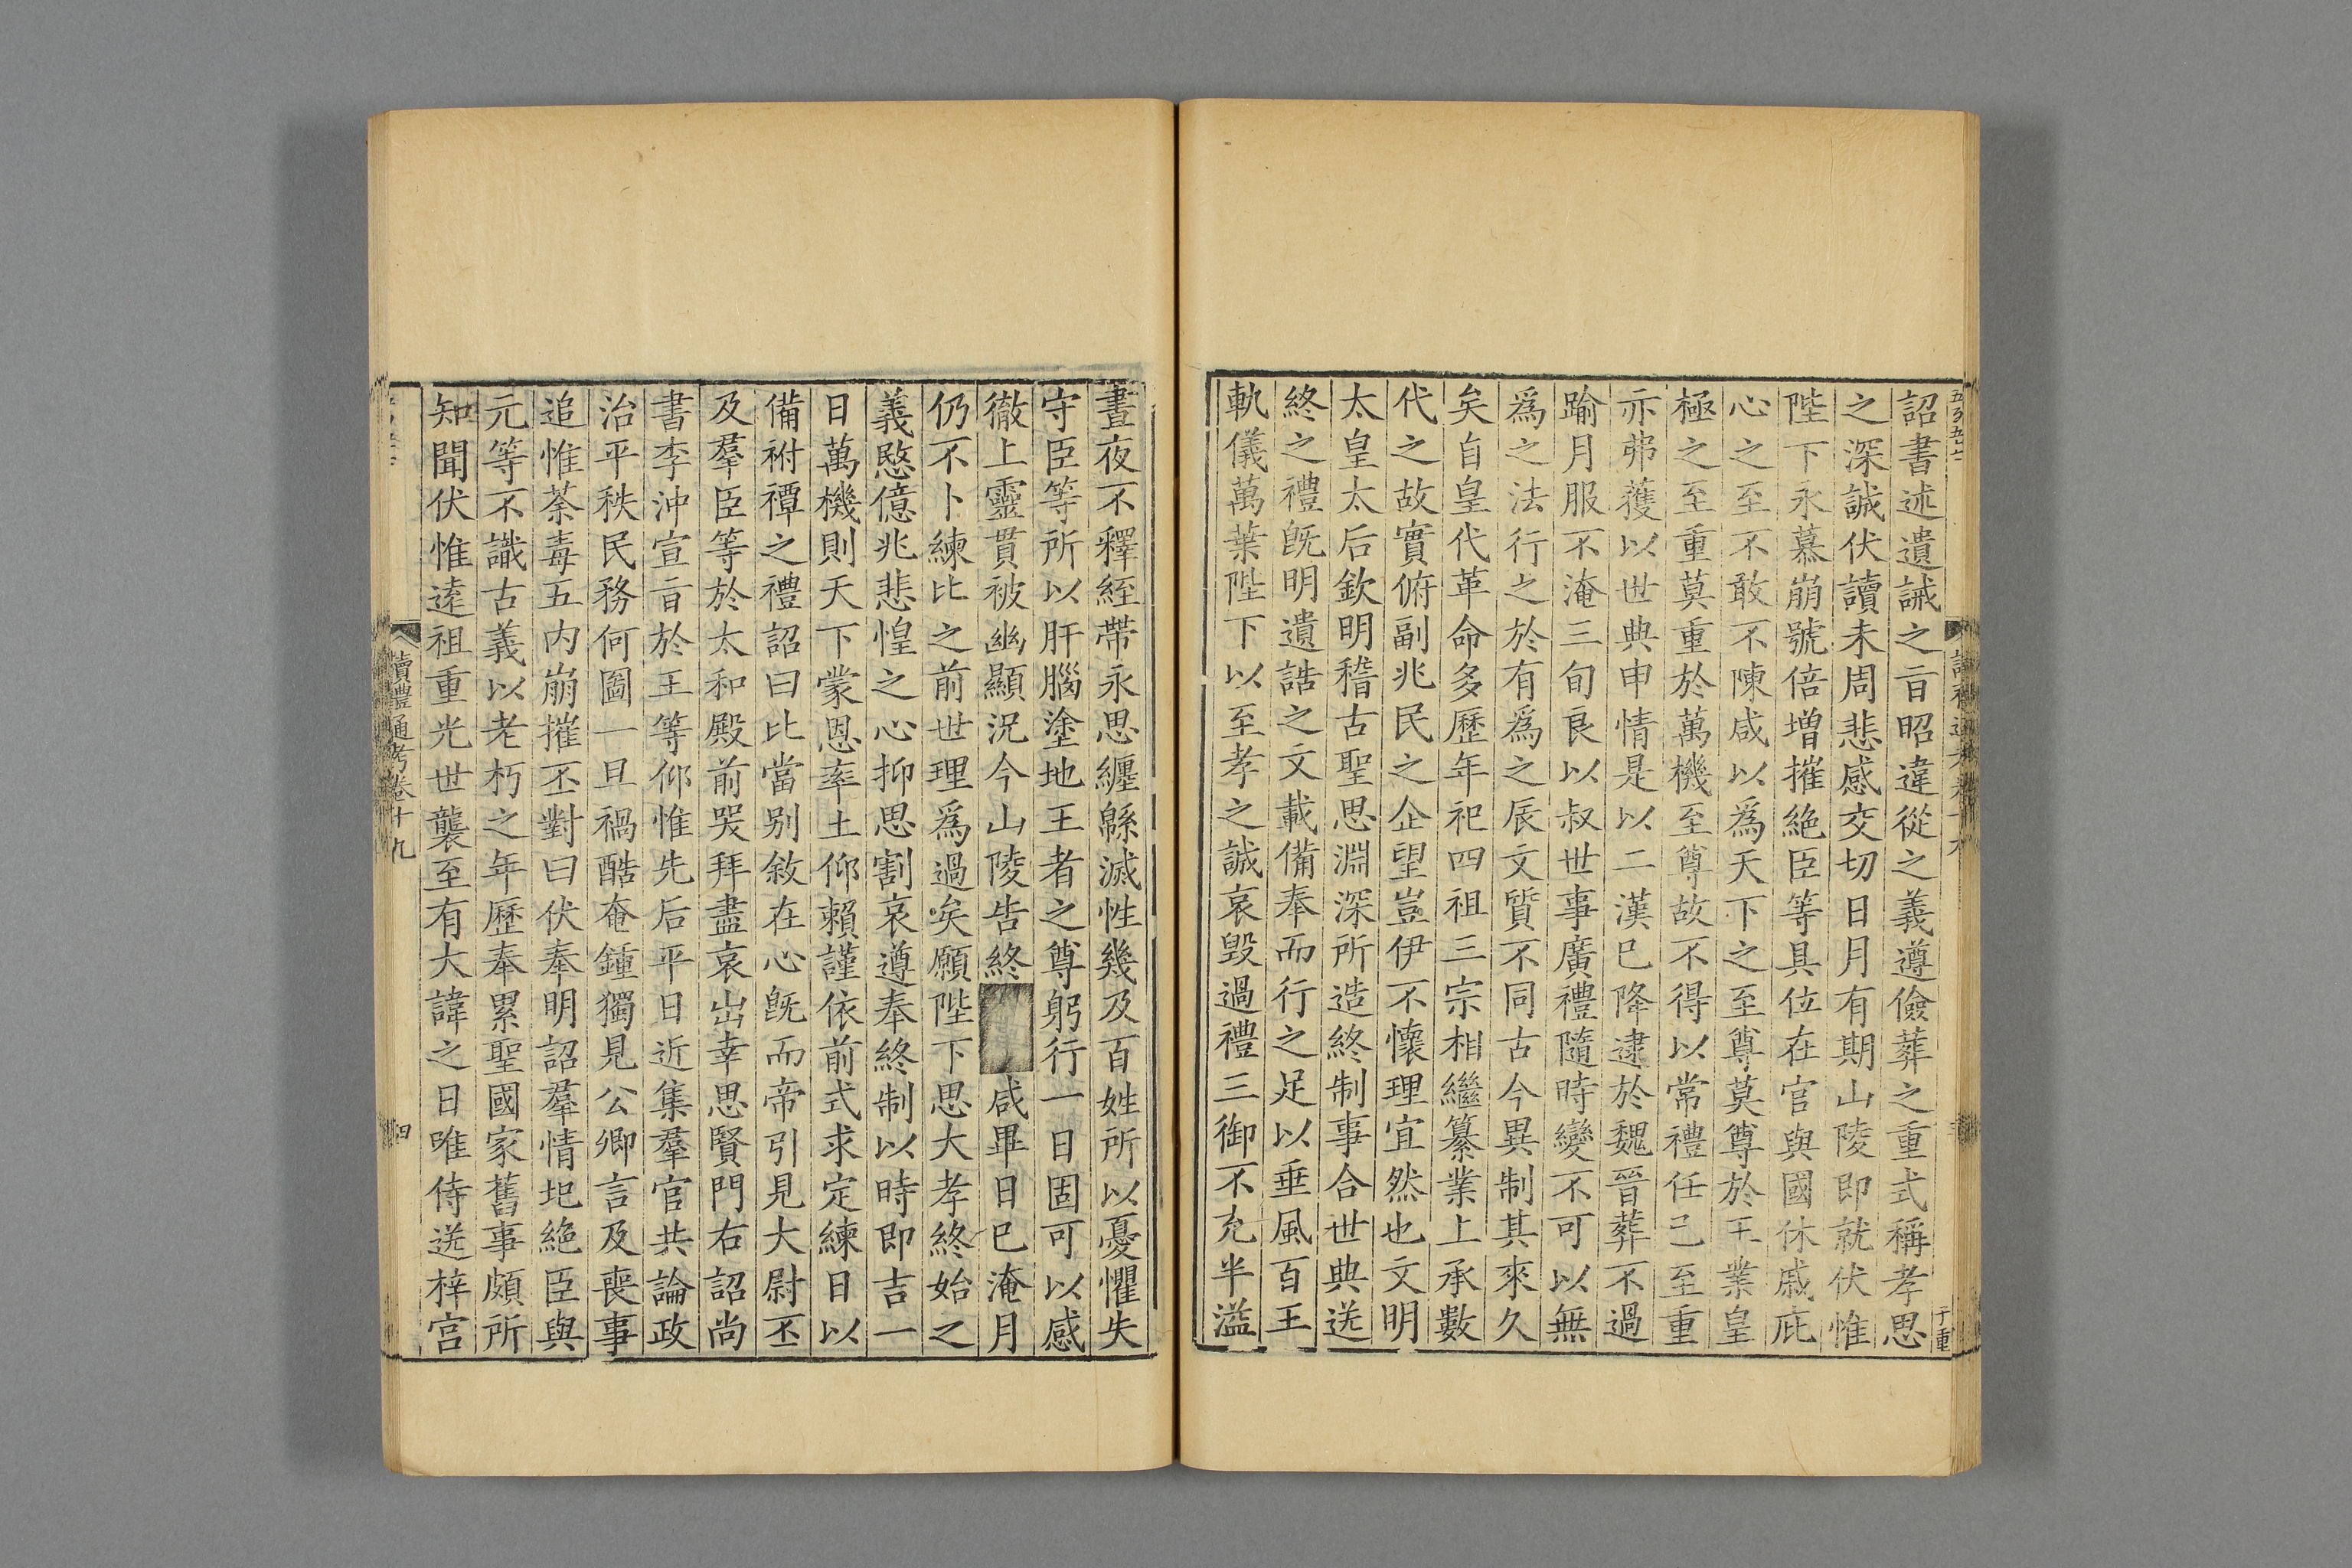 詔書述遺誡之旨昭違從之義遵儉葬之重式稱孝思
之深誠伏讀未周悲感交切日月有期山陵即就伏惟
陛下永慕崩號倍增摧絶臣等具位在官與國休戚庇
心之至不敢不陳咸以爲天下之至尊莫尊於王業皇
極之至重莫重於萬機至尊故不得以常禮任己至重
亦弗獲以世典申情是以二漢巳降逮於魏晉葬不過
踰月服不淹三旬良以叔世事廣禮隨時變不可以無
爲之法行之於有爲之辰文質不同古今異制其來久
矣自皇代革命多歷年祀四祖三宗相繼纂業上承數
代之故實俯副兆民之企望豈伊不懷理宜然也文明
太皇太后欽明稽古聖思淵深所造終制事合世典送
終之禮旣明遺誥之文載備奉而行之足以垂風百王
軌儀萬葉陛下以至孝之誠哀毀過禮三御不充半溢
晝夜不釋絰帶永思纏緜滅性幾及百姓所以憂懼失
守臣等所以肝腦塗地王者之尊躬行一日固可以感
徹上靈貫被幽顯況今山陵告終咸畢日巳淹月
仍不卜練比之前世理爲過矣願陛下思大孝終始之
義愍億兆悲惶之心抑思割哀遵奉終制以時即吉一
日萬機則天下蒙恩率土仰賴謹依前式求定練日以
備祔禫之禮詔曰比當别敘在心旣而帝引見大尉丕
及羣臣等於太和殿前哭拜盡哀出幸思賢門右詔尚
書李沖宣旨於王等仰惟先后平日近集羣官共論政
治平秩民務何圖一旦禍酷奄鍾獨見公卿言及喪事
追惟荼毒五内崩摧丕對曰伏奉明詔羣情圮絶臣與
元等不識古義以老朽之年歷奉累聖國家舊事頗所
知聞伏惟逺祖重光世襲至有大諱之日唯侍送梓宫
讀禮通考卷十九
四